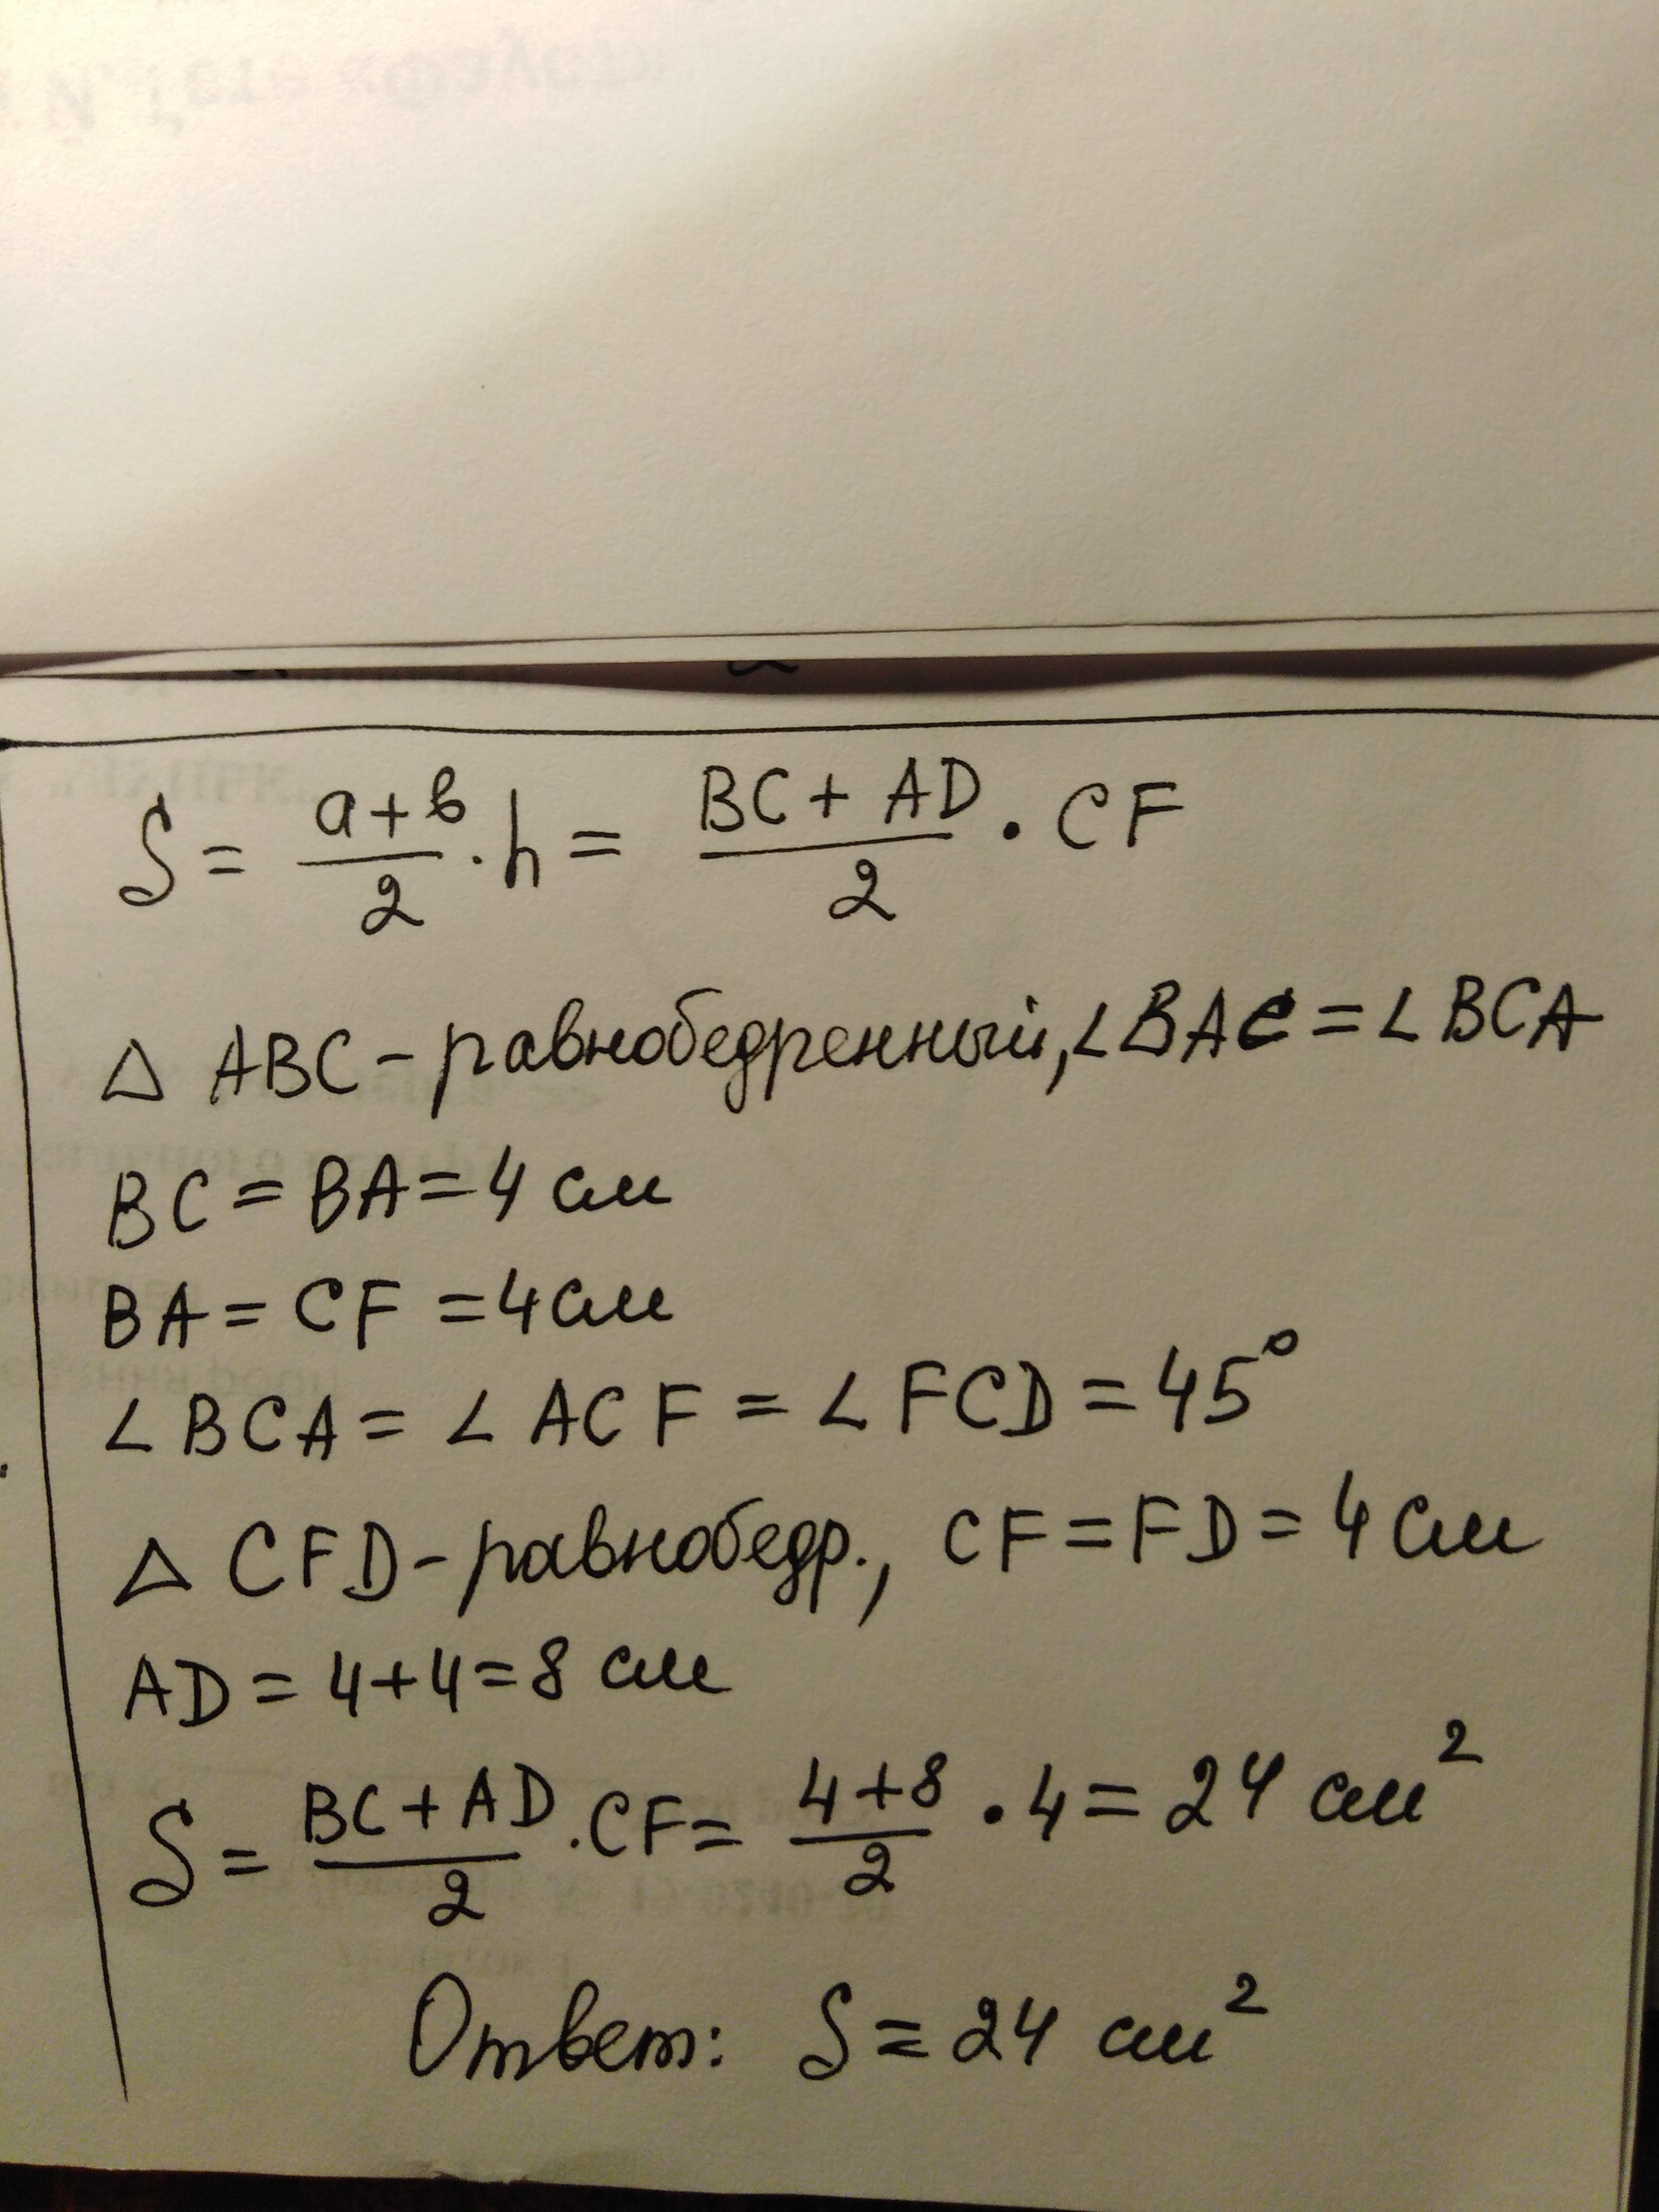 S = a+b/2 · h = BC + AD/2 · CF
△ ABC - равнобедренный, ∠BAC = ∠BCA
BC = BA = 4 см
BA = CF = 4 см
∠BCA = ∠ACF = ∠FCD = 45°
△ CFD - равнобедр., CF = FD = 4 см
AD = 4+4=8 см
S = BC+AD/2 · CF = 4+8/2 · 4 = 24 см²
Ответ: S = 24 см²